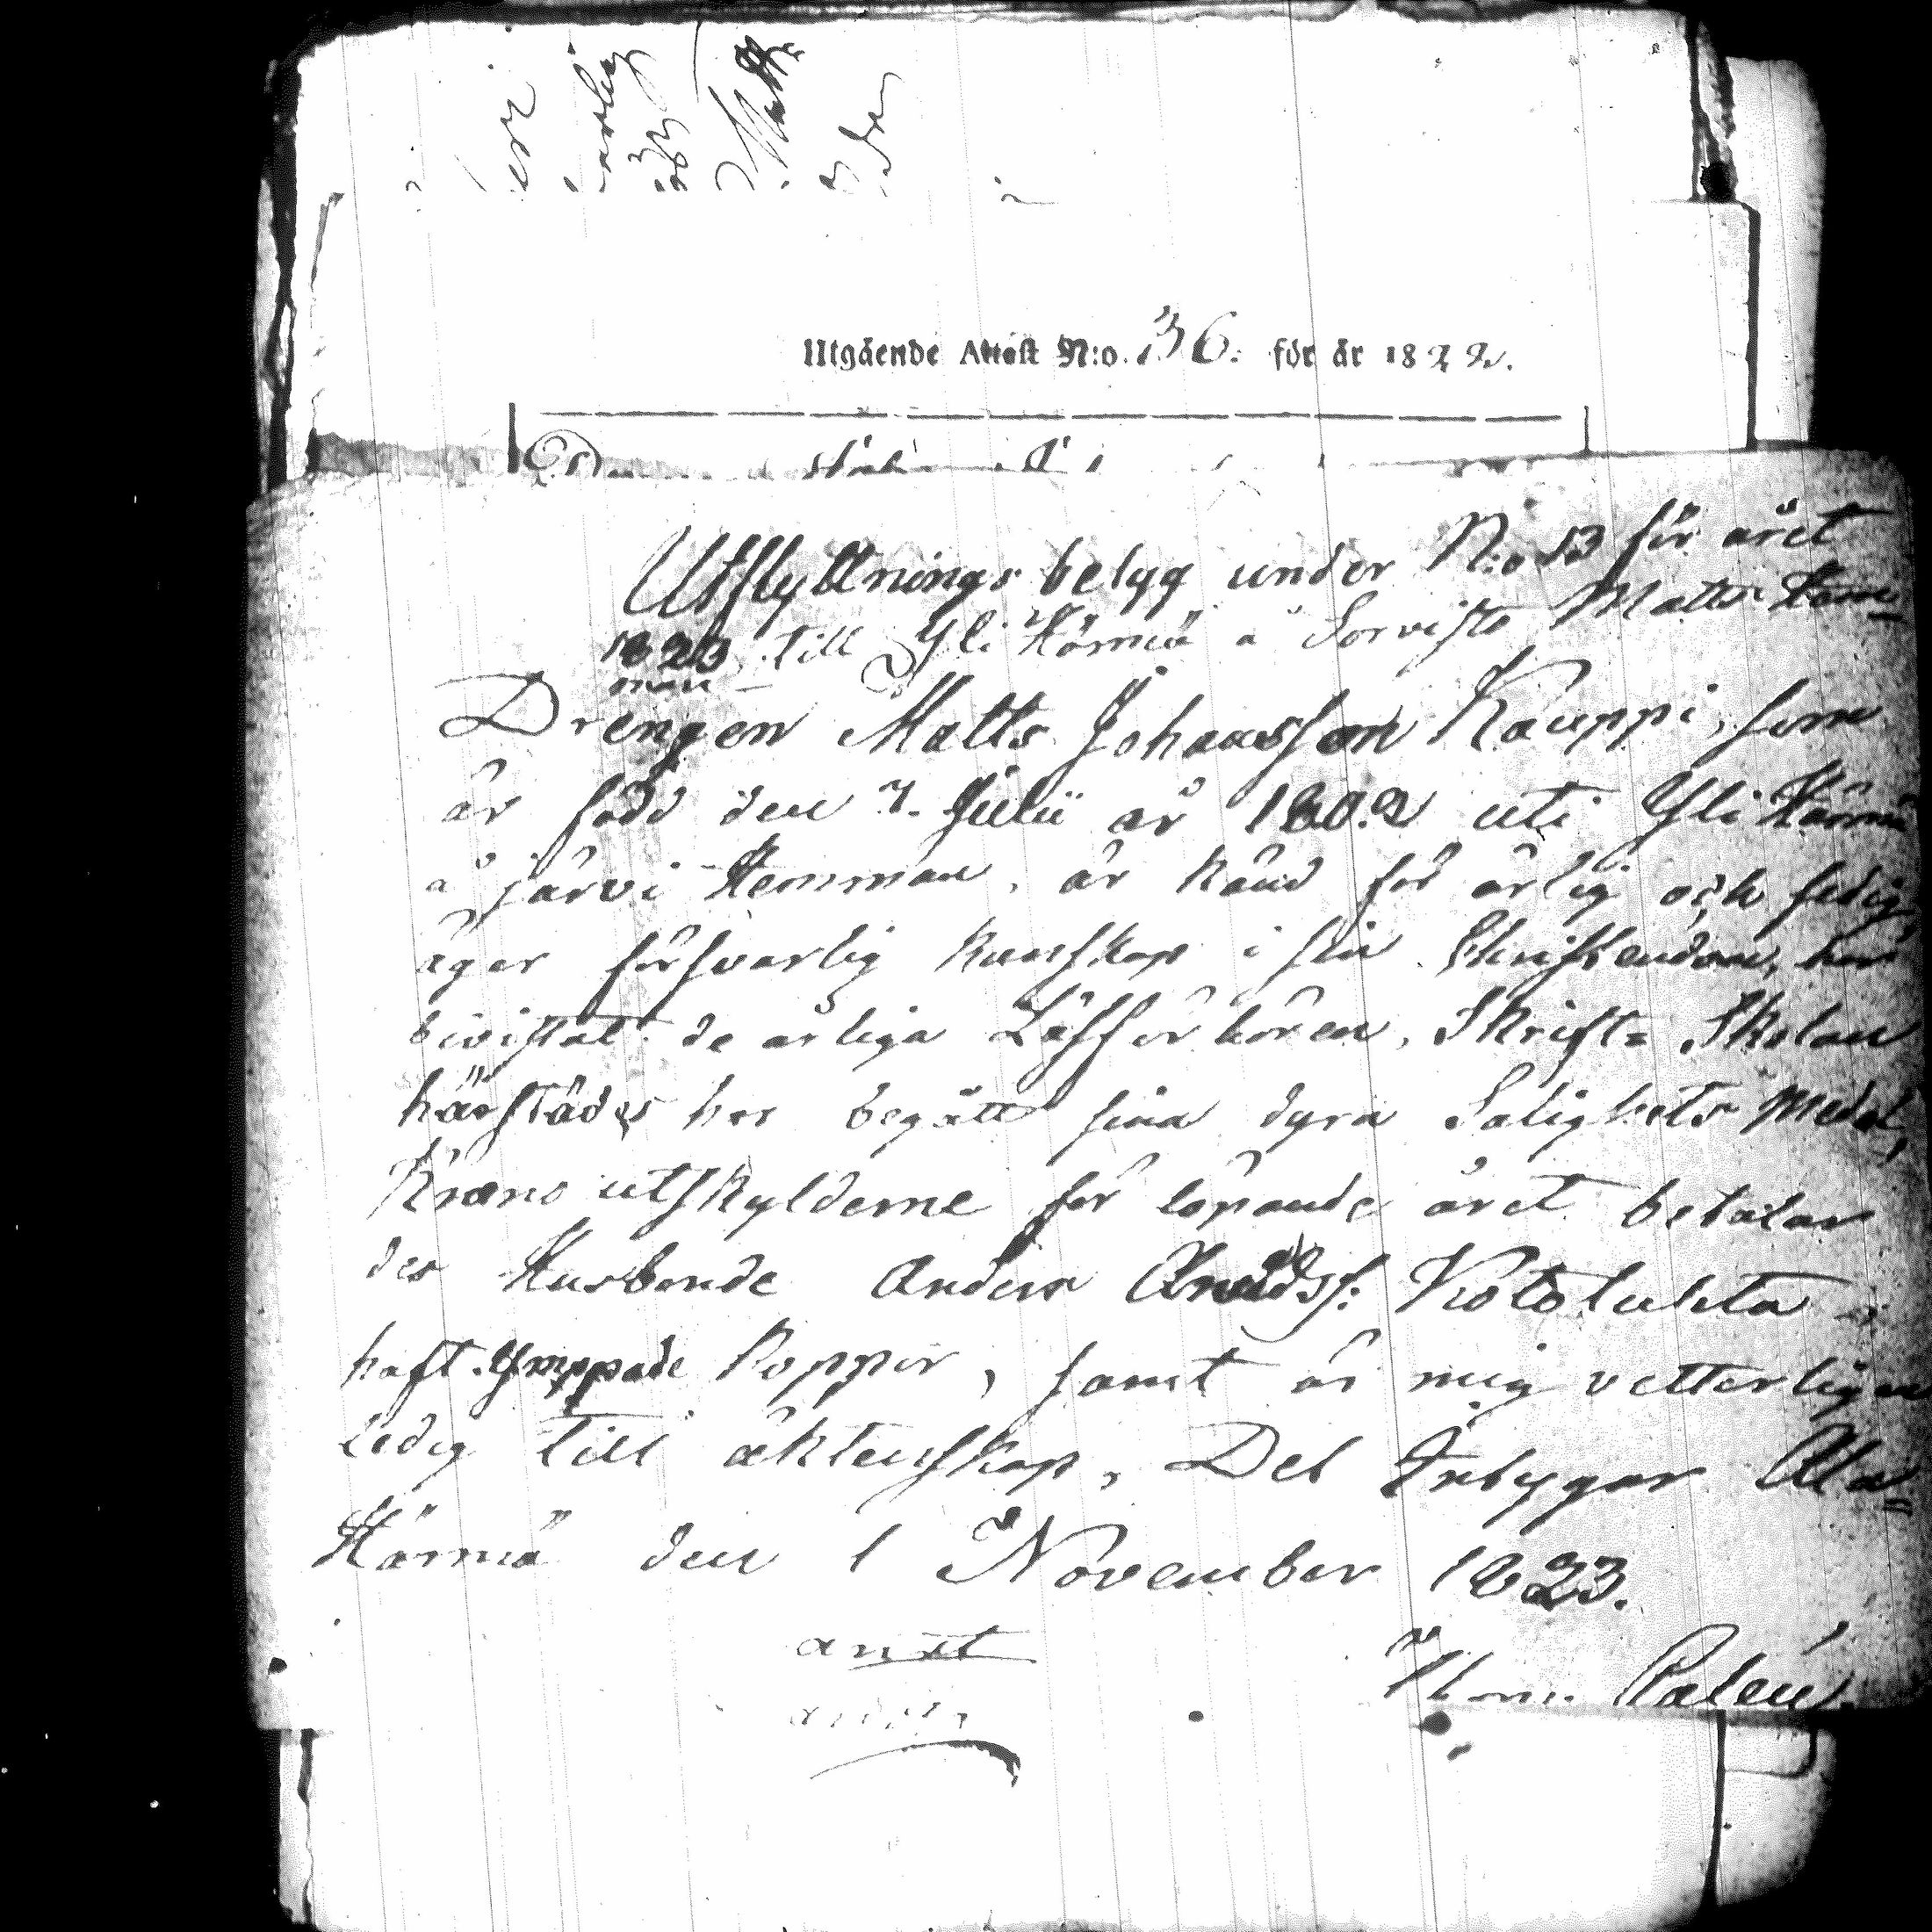 Utgående Attest N:o. 36. för år 1822.
Utflyttnings belyg under N:o 13 för året
1823, till Yli Härmä å Sorvisto Matts Hem-
man
Drengen Matts Johansson Kauppi, som
är född den 7. Julii år 1802 uti Yli Härmä
å järvi Hemman, är känd för ärlig och sedig
äger försvarlig kunskap i sin Christendom, har
bivistat de årliga Läsförhören, Skrift= Skolan
härstädes har begått sina dyra Salighets Medel,
Krono utskylderne för löpande året betalar
des Husbonde Anders Aridsf: Kotoluhta
haft Ymppade Koppor, samt är mig vetterligen
ledig till äktenskap, Det Intygar Ala=
Härmä den 1 November 1823.
anxt
Thom. Palén